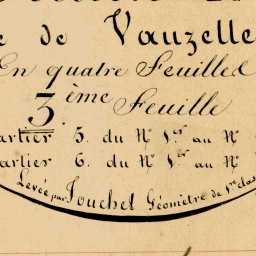 e de Vauzelle
En quatre Feuilles
3.ème Feuille
artier 5. du N° 1er au N°
artier 6. du N° 1er au N°
Levée par Jouchet Géomètre de 1re clas